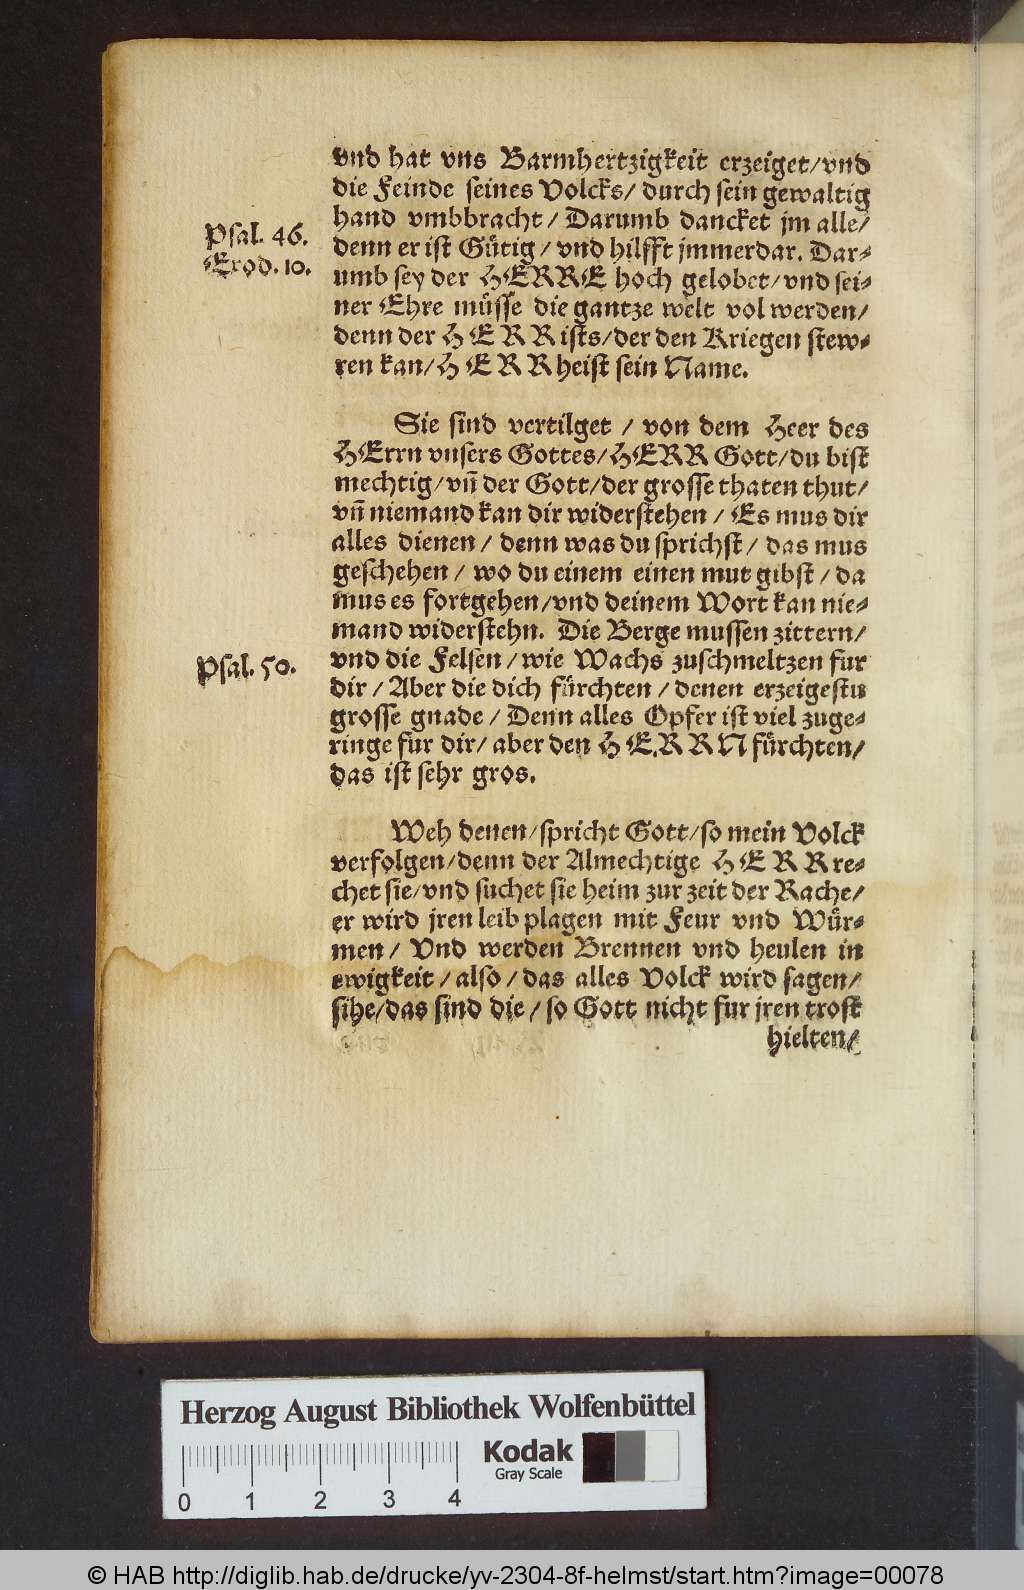 vnd hat vns Barmhertzigkeit erzeiget/vnd
die Feinde seines Volcks/ durch sein gewaltig
hand vmbbracht/ Darumb dancket jm alle/
denn er ist Gütig/ vnd hilfft jmmerdar. Dar-
umb sey der HERRE hoch gelobet/vnd sei-
ner Ehre müsse die gantze welt vol werden/
denn der HERR ists/der den Kriegen stew-
ren kan/HERR heist sein Name.
Psal. 46.
Exod. 10.
Sie sind vertilget / von dem Heer des
HErrn vnsers Gottes/HERR Gott/du bist
mechtig/vñ der Gott/der grosse thaten thut/
vñ niemand kan dir widerstehen / Es mus dir
alles dienen / denn was du sprichst / das mus
geschehen / wo du einem einen mut gibst / da
mus es fortgehen/vnd deinem Wort kan nie-
mand widerstehn. Die Berge mussen zittern/
vnd die Felsen / wie Wachs zuschmeltzen fur
dir / Aber die dich fürchten / denen erzeigestu
grosse gnade / Denn alles Opfer ist viel zuge-
ringe fur dir/ aber den HERRN fürchten/
das ist sehr gros.
Psal. 50.
Weh denen/spricht Gott/so mein Volck
verfolgen/denn der Almechtige HERR re-
chet sie/vnd suchet sie heim zur zeit der Rache/
er wird jren leib plagen mit Feur vnd Wür-
men/ Vnd werden Brennen vnd heulen in
ewigkeit / also / das alles Volck wird sagen/
sihe/das sind die / so Gott nicht fur jren trost
hielten/
Herzog August Bibliothek Wolfenbüttel
Kodak
Gray Scale
0 1 2 3 4
© HAB http://diglib.hab.de/drucke/yv-2304-8f-helmst/start.htm?image=00078